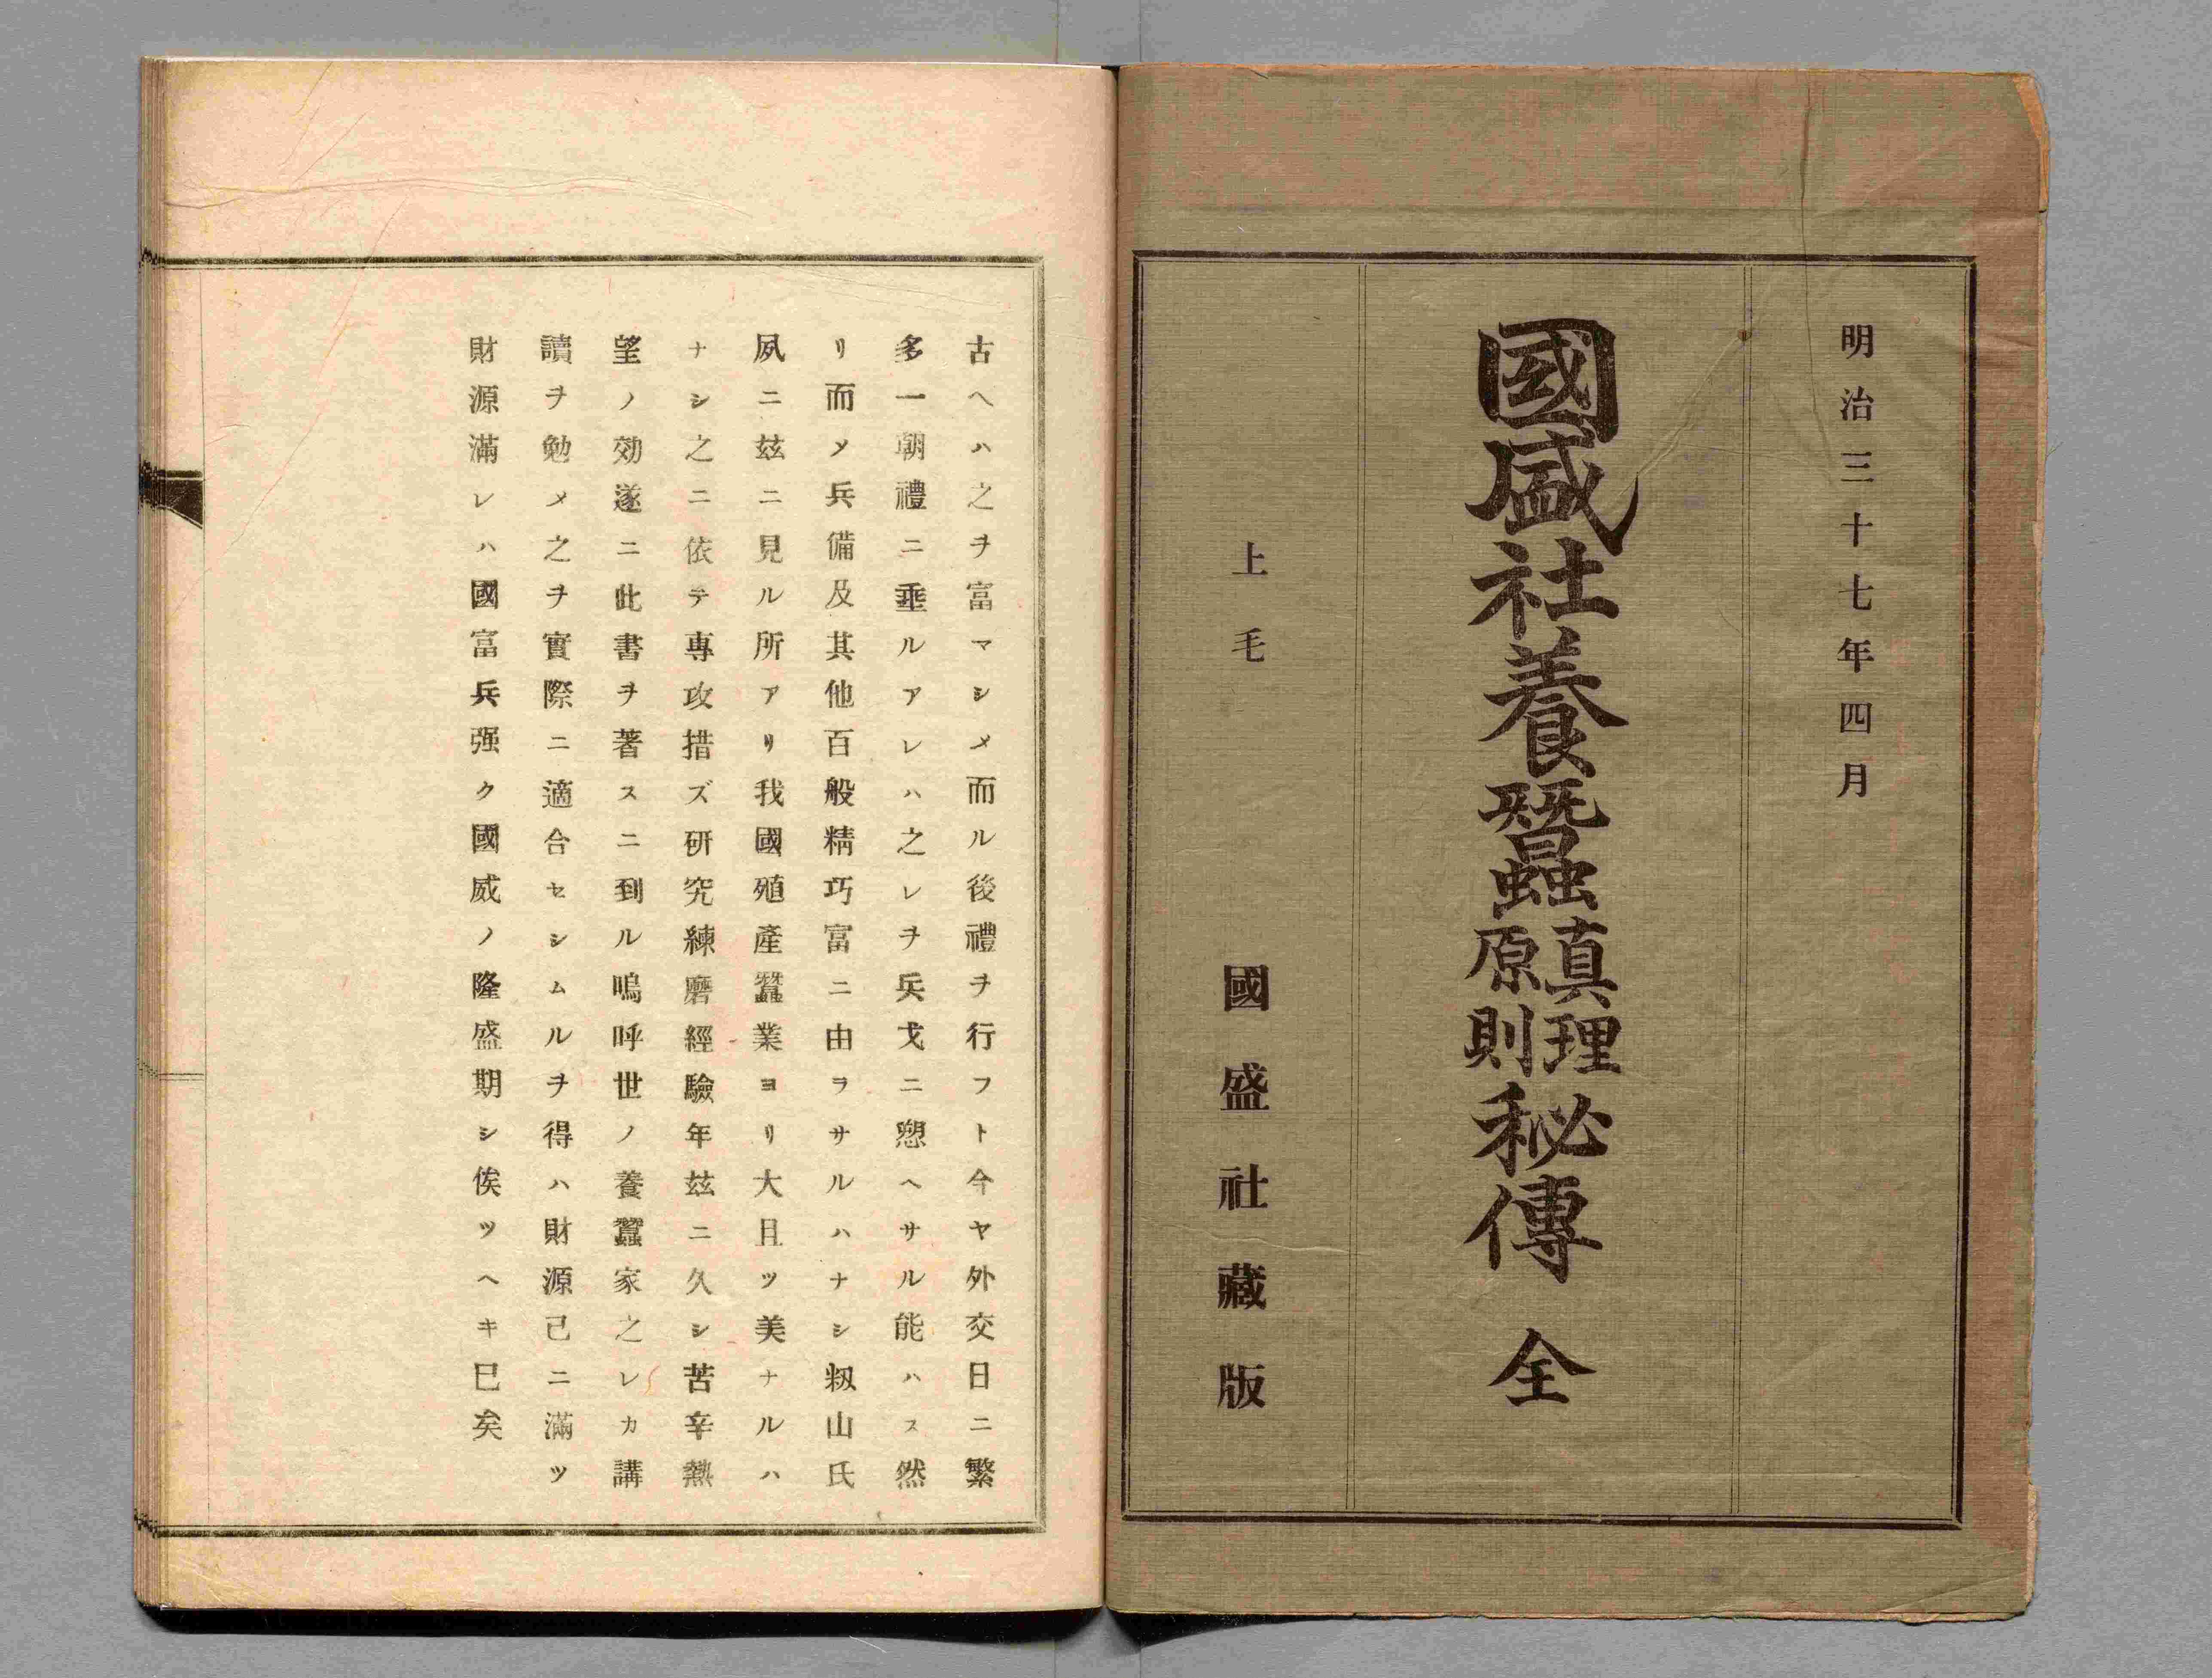 明治三十七年四月
國盛社養蠶真理原則秘傳 全
上毛 國盛社藏版
古ヘハ之ヲ富マシメ而ル後禮ヲ行フト今ヤ外交日ニ繁
多一朝禮ニ乖ルアレハ之レヲ兵戈ニ愬ヘサル能ハス然
リ而メ兵備及其他百般精巧富ニ由ラサルハナシ籾山氏
夙ニ玆ニ見ル所アリ我國殖產蠶業ヨリ大且ツ美ナルハ
ナシ之ニ依テ專攻措ズ研究練磨經驗年玆ニ久シ苦辛熱
望ノ効遂ニ此書ヲ著スニ到ル嗚呼世ノ養蠶家之レカ講
讀ヲ勉メ之ヲ實際ニ適合セシムルヲ得ハ財源己ニ滿ツ
財源滿レハ國富兵强ク國威ノ隆盛期シ俟ツヘキ巳矣